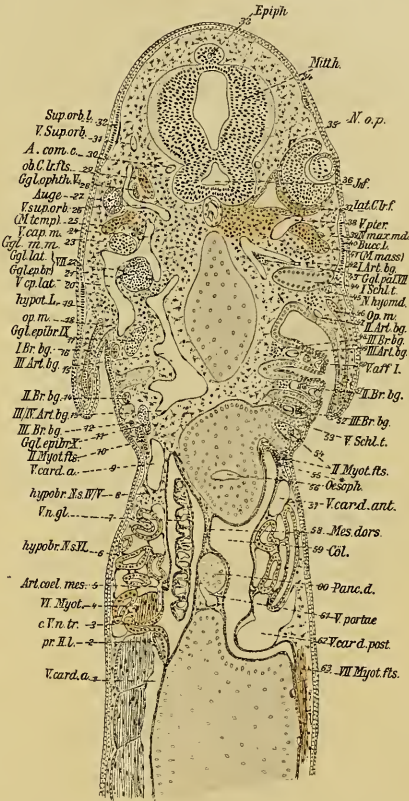 Epiph
33
Mitth.
34
Sup.orb.l. 32
V.Sup.orb. 31
A.com.c. 30
ob.C.lr.fts. 29
Ggl.ophth.V. 28
Auge 27
V.sup.orb. 26
(M.temp) 25
V.cap.m. 24
Ggl.m.m. 23
Ggl.lat. VII 22
Ggl.epbr. 21
V.cp.lat. 20
hypot.L. 19
op.m. 18
Ggl.epibr.IX 17
I.Br.bg. 16
III.Art.bg. 15
II.Br.bg. 14
III/IV.Art.bg. 13
III.Br.bg. 12
Ggl.epibr.X. 11
II.Myot.fts. 10
V.card.a. 9
hypobr.N.s.IV/V 8
V.n.gl. 7
hypobr.N.s.VI. 6
Art.coel.mes. 5
VI.Myot. 4
c.V.n.tr. 3
pr.H.l. 2
V.card.a.
35 N.o.p.
36 Inf.
lat.C.lr.f.
38 V.pter.
39 N.max.md.
40 Bucc.b.
(M.mass)
I.Art.bg.
Ggl.pal.VII
44 I.Schl.t.
45 N.hyomd.
46 Op.m.
II.Art.bg.
III.Br.bg.
III.Art.bg.
V.aff I.
II.Br.bg.
52 III.Br.bg.
53 V.Schl.t.
54 II.Myot.fts.
55
56 Oesoph.
57 V.card.ant.
58 Mes.dors.
59 Cöl.
60 Panc.d.
61 V.portae
62 V.card.post.
63 VII.Myot.fts.